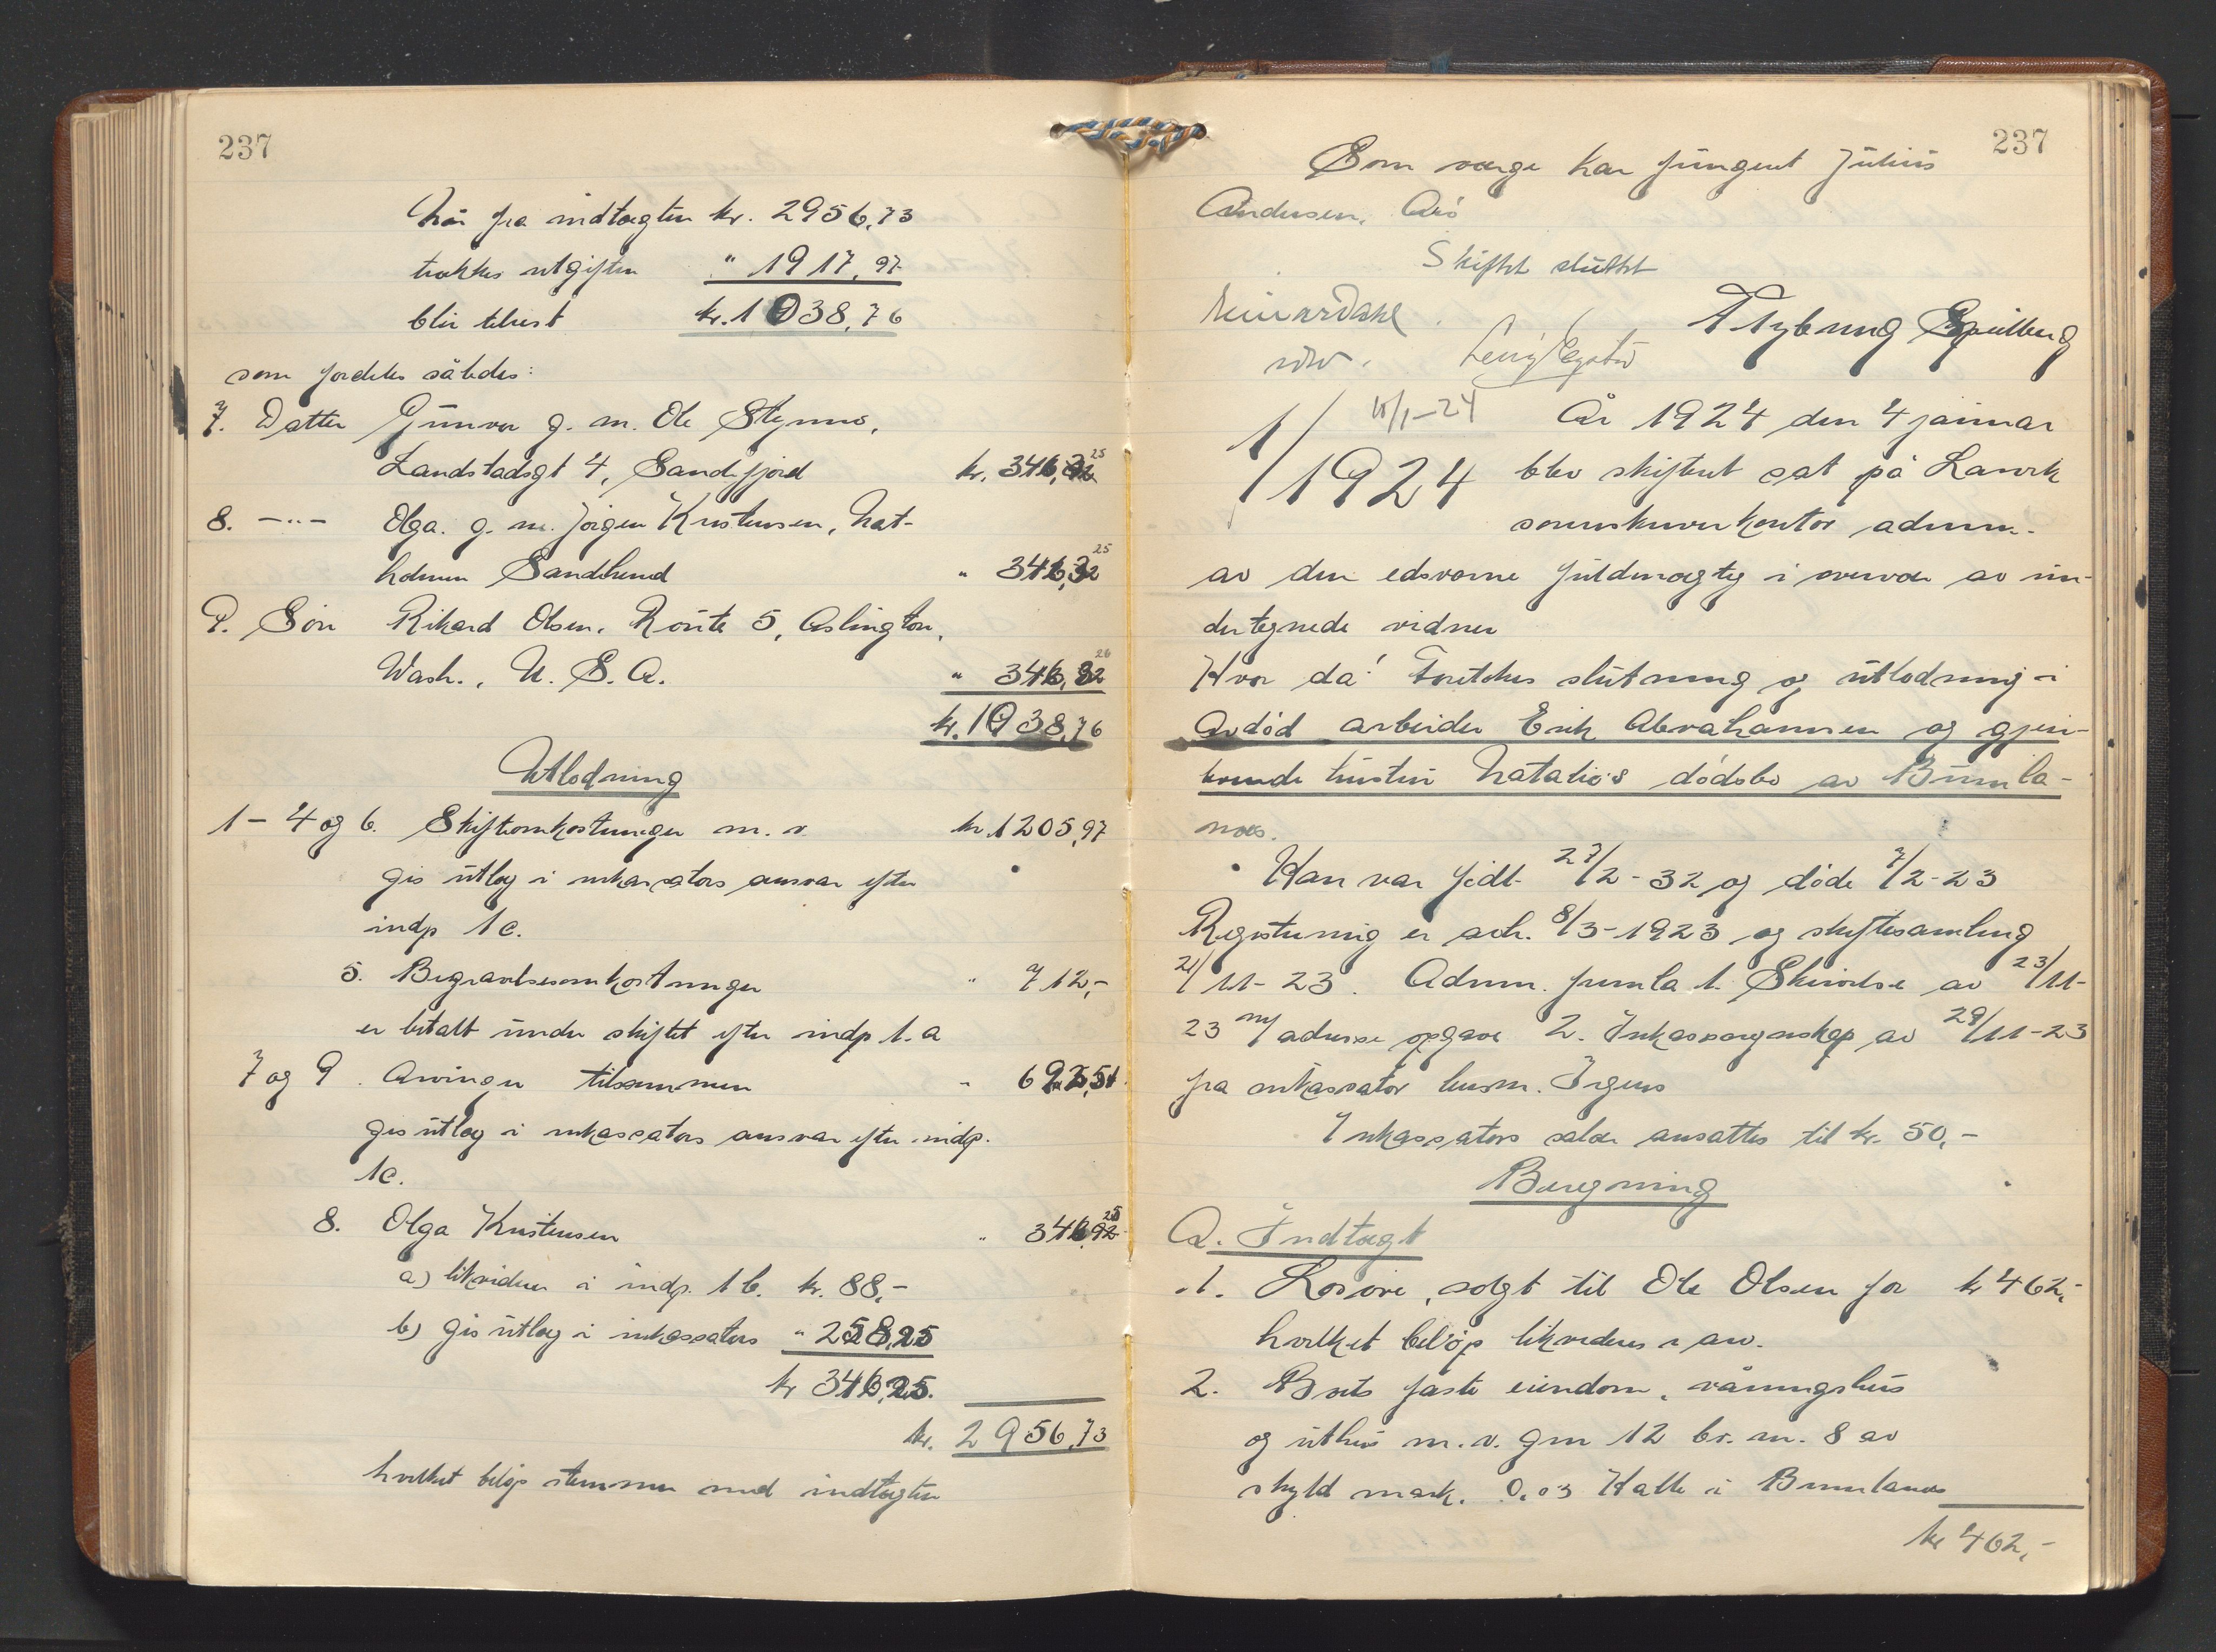 237
Når fra indtægten kr. 2956,73
trækkes utgiften " 1917,97
blir tilrest kr. 1038,76
som fordeles således:
7. Datter Gunvor g. m. Ole
Landstadsgt 4, Sandefjord kr. 346,25
8. -"- Olga. g. m. Jørgen Kristensen, Nat-
holmen Sandeherred " 346,25
9. Søn Rikard Olsen, Route 5, Arlington,
Wash., U. S. A. " 346,26
kr. 1038,76
Utlodning
1-4 og 6. Skifteomkostninger m. v. kr. 1205,97
gis utlæg i inkassators ansvar efter
indp 1 c.
5. Begravelsesomkostninger " 712,-
er betalt under skiftet efter indp 1. a
7 og 9. Arvinger tilsammen " 692,51
gis utlæg i inkassators ansvar efter indp.
1c.
8. Olga Kristensen " 346,25
a) likvideres i indp. 1 b. kr. 88,-
b) gis utlæg i inkassators " 258,25
kr 346,25.
kr. 2956,73
hvilket beløp stemmer med indtægten
237
Som værge har fungert Julius
Andersen, Arø
Skiftet sluttet
Einar Dahl
Flybring Speilberg
1/1924
15/1-24 År 1924 den 4 januar
blev skifteret sat på Larvik
sorenskriverkontor adminr.
av den edsvorne fuldmægtig i overvær av un-
dertegnede vidner
Hvor da! Foretokes slutning og utlodning i
avdød arbeider Erik Abrahamsen og gjen-
levende hustru Natalie's dødsbo av Brunla-
nes.
Han var født 27/2-32 og døde 7/2-23
Registrering er avh. 8/3-1923 og skiftesamling
21/11-23. Adminr. fremla 1. Skrivelse av 23/11-
23 m/ adresse opgave 2. Inkassoregnskap av 29/11-23
fra inkassator lensm. Irgens
Inkassators salær ansattes til kr. 50,-
Beregning
A. Indtægt
1. Løsøre, solgt til Ole Olsen for kr 462,-
hvilket beløp likvideres i arv.
2. Boets faste eiendom, våningshus
og uthus m. v. gnr 12 br. nr. 8 av
skyld mark. 0,03 Halle i Brunlanes
kr 462,-